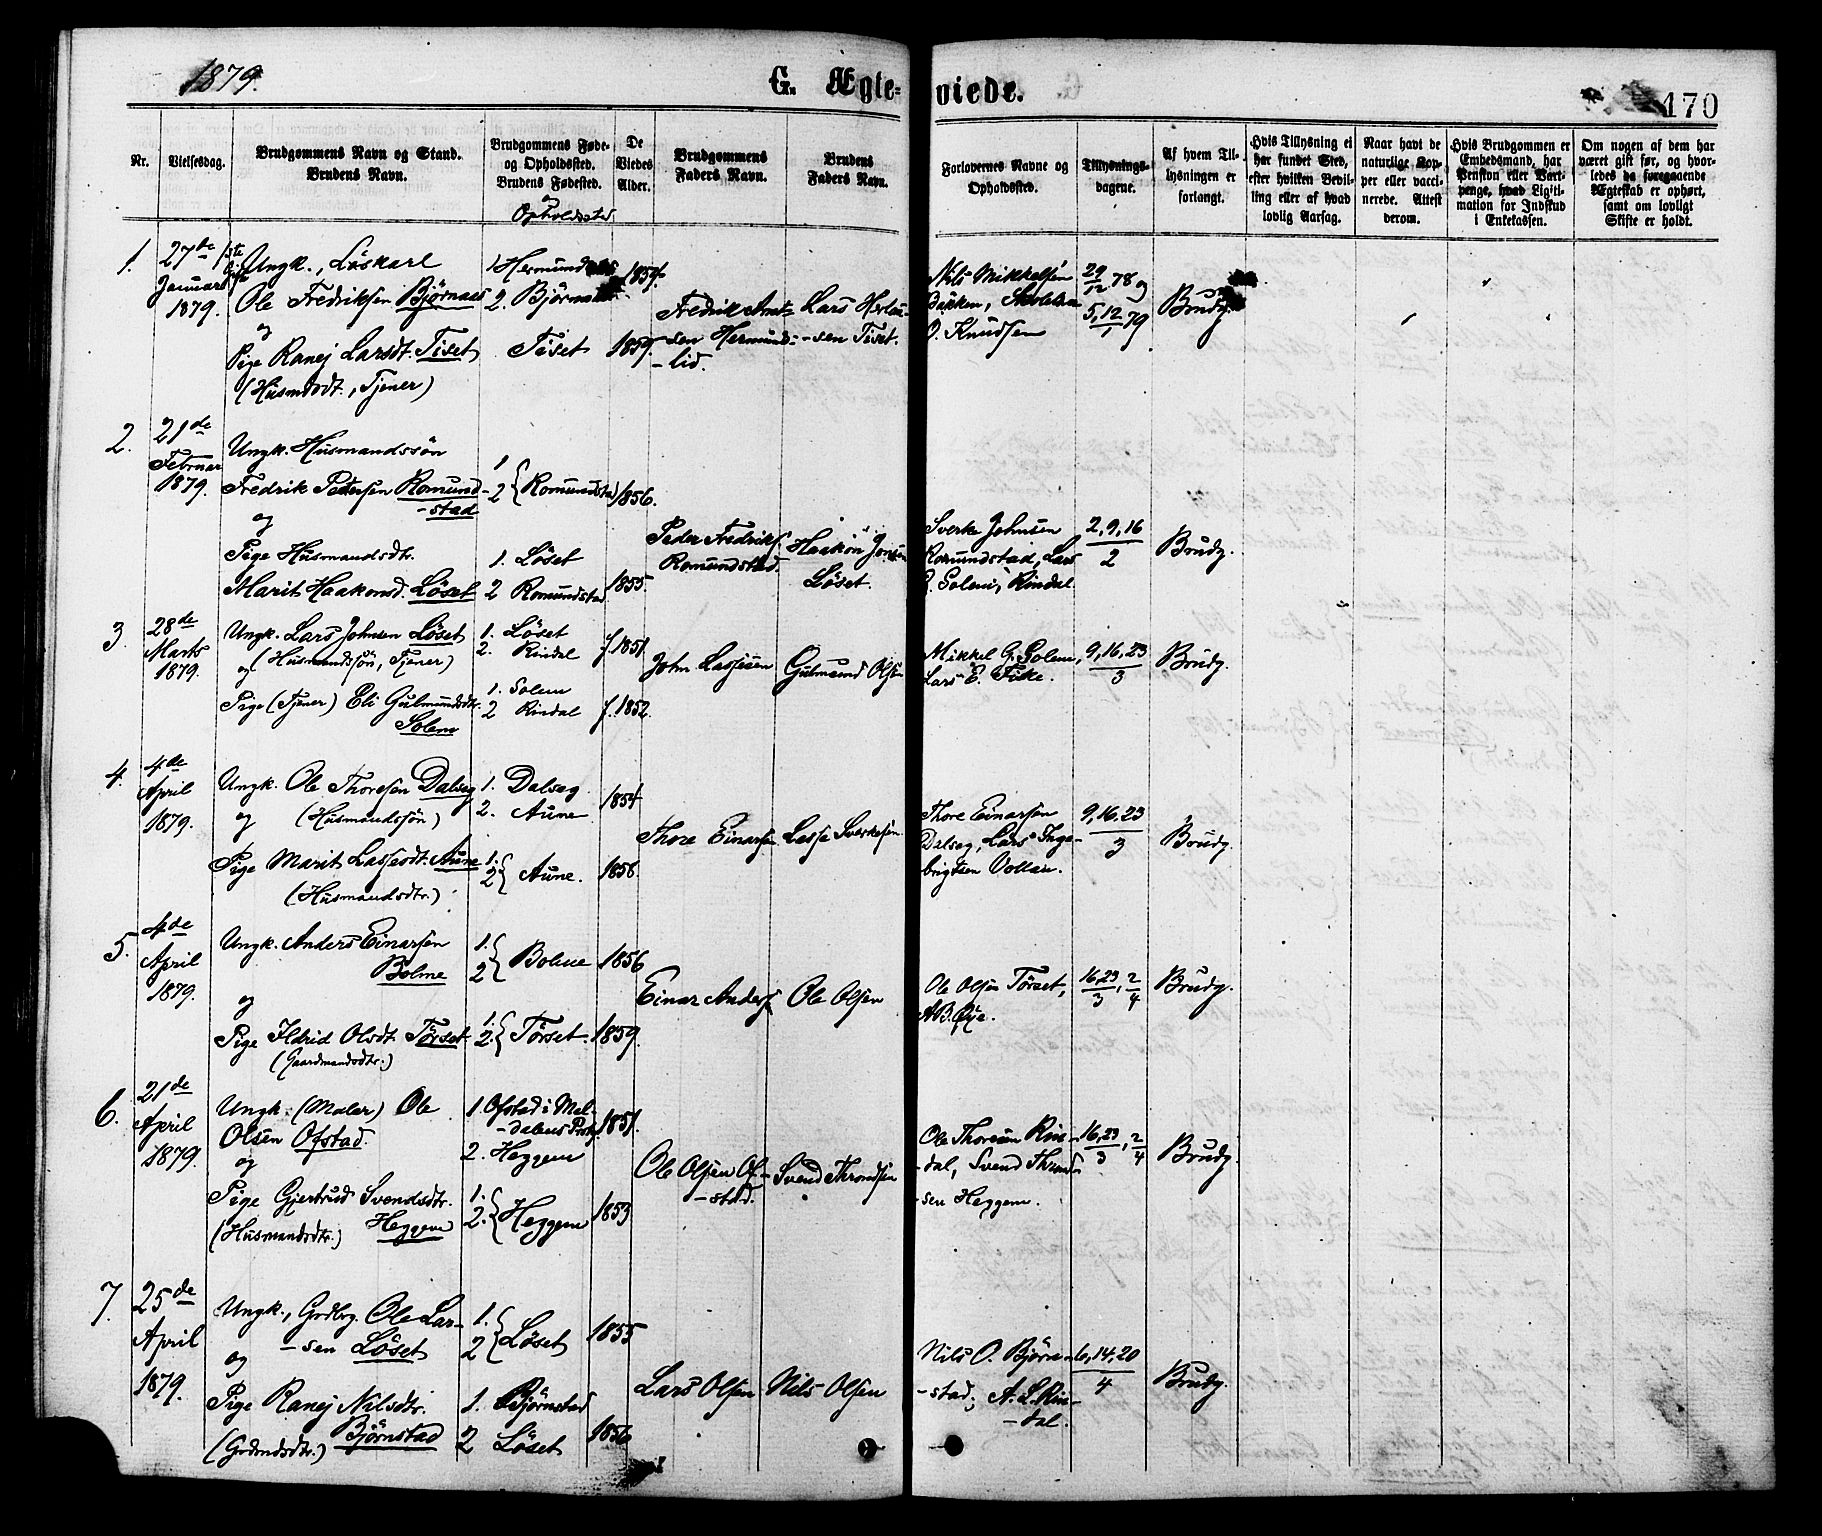 1879.
G. Ægte-
viede.
170
Nr.
Vielsesdag.
Brudgommens Navn og Stand.
Brudens Navn.
Brudgommens Føde-
og Opholdssted.
Brudens Fødested.
og
Opholdssted
De
Viedes
Alder.
Brudgommens
Faders Navn.
Brudens
Faders Navn.
Forlovernes Navne og
Opholdssted.
Tillysnings-
dagene.
Af hvem Til-
lysningen er
forlangt.
Hvis Tillysning ei
har fundet Sted,
efter hvilken Bevil-
ling eller af hvad
lovlig Aarsag.
Naar havt de
naturlige Kop-
per eller vacci-
nerede. Attest
derom.
Hvis Brudgommen er
Embedsmand, har
Pension eller Vart-
penge, hvad Ligiti-
mation for Indskud
i Enkekassen.
Om nogen af dem har
været gift før, og hvor-
ledes da foregaaende
Ægteskab er ophørt,
samt om lovligt
Skifte er holdt.
1.
27de
Januar
1879.
Ungk., Löskarl
Ole Fredriksen Björnaas
og
Pige Ranej Larsdt. Tiset
(Husmdsdt., Tjener)
2. Björnaas
Tiset
1854.
1859.
Fredrik Amt-
sen Hermund-
-lid.
-sen Tiset.
Nils Mikkelsen
Bakken,
O. Knudsen
29/12 78 og
5, 12/1 79
Brudg.
2.
21de
Februar
1879.
Ungk. Husmandssön
Fredrik Pedersen Romund-
-stad
og
Pige Husmandsdtr.
Marit Haakonsd. Löset
1
2 { Romundstad
1. Löset
2 Romundstad
1856.
1855.
Peder Fredriks.
Romundstad.
Haakon Jonsen
Löset.
Sverke Johnsen
Romundstad, Lars
E. Solem, Rindal.
2, 9, 16
2
Brudg.
3
28de
Marts
1879.
Ungk. Lars Johnsen Löset
og (Husmandssön, Tjener)
Pige (Tjener) Eli Gulmundsdtr.
Solem
1. Löset
2. Rindal
1. Solem
2 Rindal
f. 1851.
f. 1852.
John Larsen
Gulmund Olsen
Mikkel G. Solem,
Lars E. Fiske.
9, 16, 23
3
Brudg.
4.
4de
April
1879.
Ungk. Ole Thoresen Dalseg
og (Husmandssön)
Pige Marit Lassesdt. Aune
(Husmandsdtr.)
1. Dalseg
2. Aune
1.
2 { Aune.
1854
1856.
Thore Einarsen
Lasse Sverkesen
Thore Einarsen
Dalseg, Lars Inge-
brigtsen Vollan.
9, 16, 23
3
Brudg.
5.
4de
April
1879.
Ungk. Anders Einarsen
Bolme
og
Pige Ildrid Olsdt. Törset
(Gaardmandsdtr.)
1.
2 { Bolme
1.
2. { Törset.
1856
1859.
Einar Anders.
Ole Olsen
Ole Olsen Törset,
A.B. Øye.
16, 23/3, 2/4
Brudg.
6.
21de
April
1879.
Ungk. (Maler) Ole
Olsen Ofstad.
og
Pige Gjertrud Svendsdtr.
(Husmandsdtr.) Heggem
1. Ofstad i Mel-
-dalens Prstg.
2. Heggem
1.
2. { Heggem
1851.
1853
Ole Olsen Of-
-stad.
Svend Throndsen
Ole Thoresen Rin-
-dal, Svend Thrond-
-sen Heggem.
16, 23/3, 2/4
Brudg.
7.
25de
April
1879.
Ungk., Grdbrg. Ole Lar-
-sen Löset
og
Pige Ranej Nilsdtr.
(Grdmdsdtr.) Björnstad
1.
2 { Löset
1. Björnstad
2 Löset
1855
1856
Lars Olsen
Nils Olsen
Nils O. Björn-
-stad; A. L. Rin-
-dal.
6, 14, 20
4
Brudg.